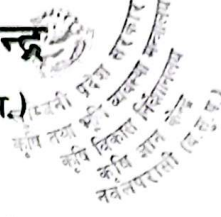 न्द्र
.)
लुम्बिनी प्रदेश सरकार
कृषि तथा भूमि व्यवस्था मन्त्रालय
कृषि विकास निर्देशनालय
कृषि ज्ञान केन्द्र
नवलपरासी (ब.सु.प.)